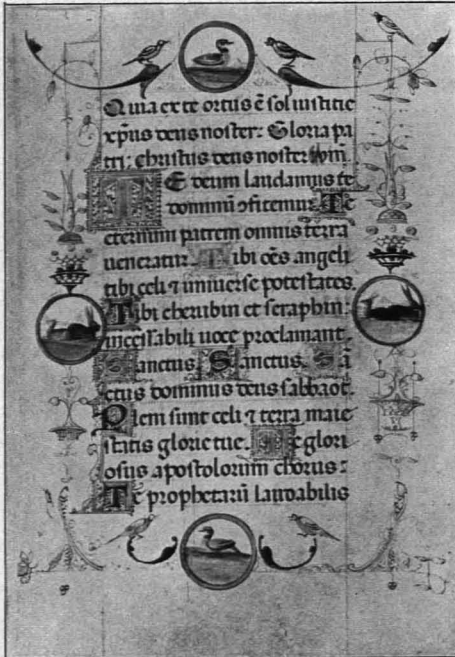 Quia ex te ortus ē sol iustitie
xp̄us deus noster: Gloria pa
tri: christus deus noster
TE deum laudamus te
dominū ↄfitemur. Te
eternum patrem omnis terra
ueneratur. Tibi oēs angeli
tibi celi ⁊ uniuerse potestates.
Tibi cherubin et seraphin:
incessabili uoce proclamant.
Sanctus. Sanctus. Sā
ctus dominus deus sabbaot.
Pleni sunt celi ⁊ terra maie
statis glorie tue. Te glori
osus apostolorum chorus:
Te prophetarū laudabilis